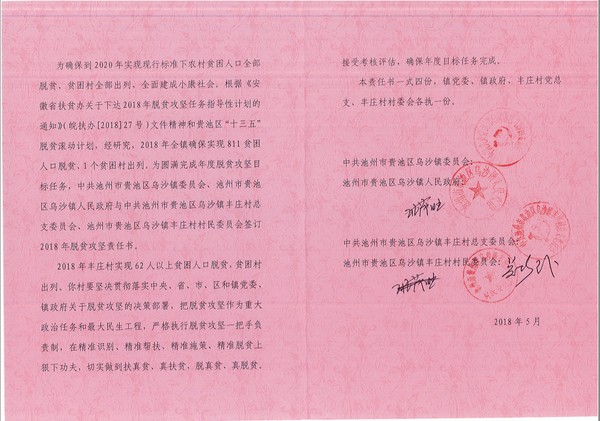 为确保到2020年实现现行标准下农村贫困人口全部
脱贫、贫困村全部出列，全面建成小康社会。根据《安
徽省扶贫办关于下达2018年脱贫攻坚任务指导性计划的
通知》（皖扶办[2018]27号）文件精神和贵池区“十三五”
脱贫滚动计划，经研究，2018年全镇确保实现811贫困
人口脱贫、1个贫困村出列。为圆满完成年度脱贫攻坚目
标任务，中共池州市贵池区乌沙镇委员会、池州市贵池
区乌沙镇人民政府与中共池州市贵池区乌沙镇丰庄村总
支委员会、池州市贵池区乌沙镇丰庄村村民委员会签订
2018年脱贫攻坚责任书。
2018年丰庄村实现62人以上贫困人口脱贫，贫困村
出列。你村要坚决贯彻落实中央、省、市、区和镇党委、
镇政府关于脱贫攻坚的决策部署，把脱贫攻坚作为重大
政治任务和最大民生工程，严格执行脱贫攻坚一把手负
责制，在精准识别、精准帮扶、精准施策、精准脱贫上
狠下功夫，切实做到扶真贫、真扶贫，脱真贫、真脱贫，
接受考核评估，确保年度目标任务完成。
本责任书一式四份，镇党委、镇政府、丰庄村党总
支、丰庄村村委会各执一份。
中共池州市贵池区乌沙镇委员会：
池州市贵池区乌沙镇人民政府：
中共池州市贵池区乌沙镇丰庄村总支委员会：
池州市贵池区乌沙镇丰庄村村民委员会：
2018年5月